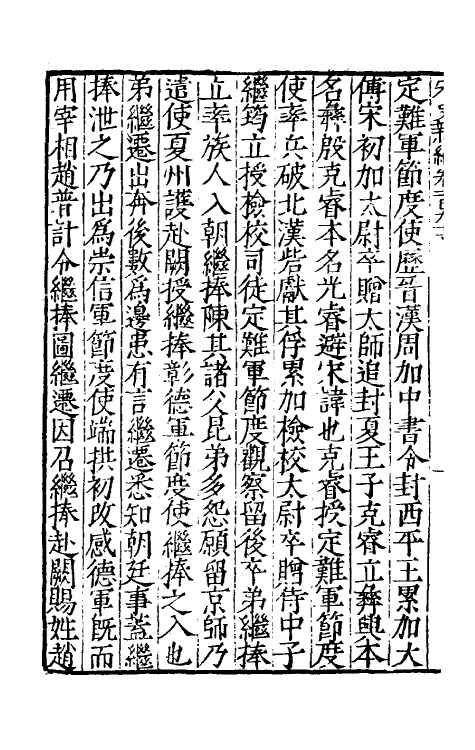 定難軍節度使歷晉漢周加中書令封西平王累加大
傅宋初加太尉卒贈太師追封夏王子克睿立彝興本
名彝殷克睿本名光睿避宋諱也克睿授定難軍節度
使率兵破北漢砦獻其俘累加檢校太尉卒贈侍中子
繼筠立授檢校司徒定難軍節度觀察留後卒弟繼捧
立率族人入朝繼捧陳其諸父昆弟多怨願留京師乃
遣使夏州護赴闕授繼捧彰德軍節度使繼捧之入也
弟繼遷出奔後數為邊患有言繼遷悉知朝廷事蓋繼
捧泄之乃出為崇信軍節度使端拱初改感德軍既而
用宰相趙普計令繼捧圖繼遷因召繼捧赴闕賜姓趙